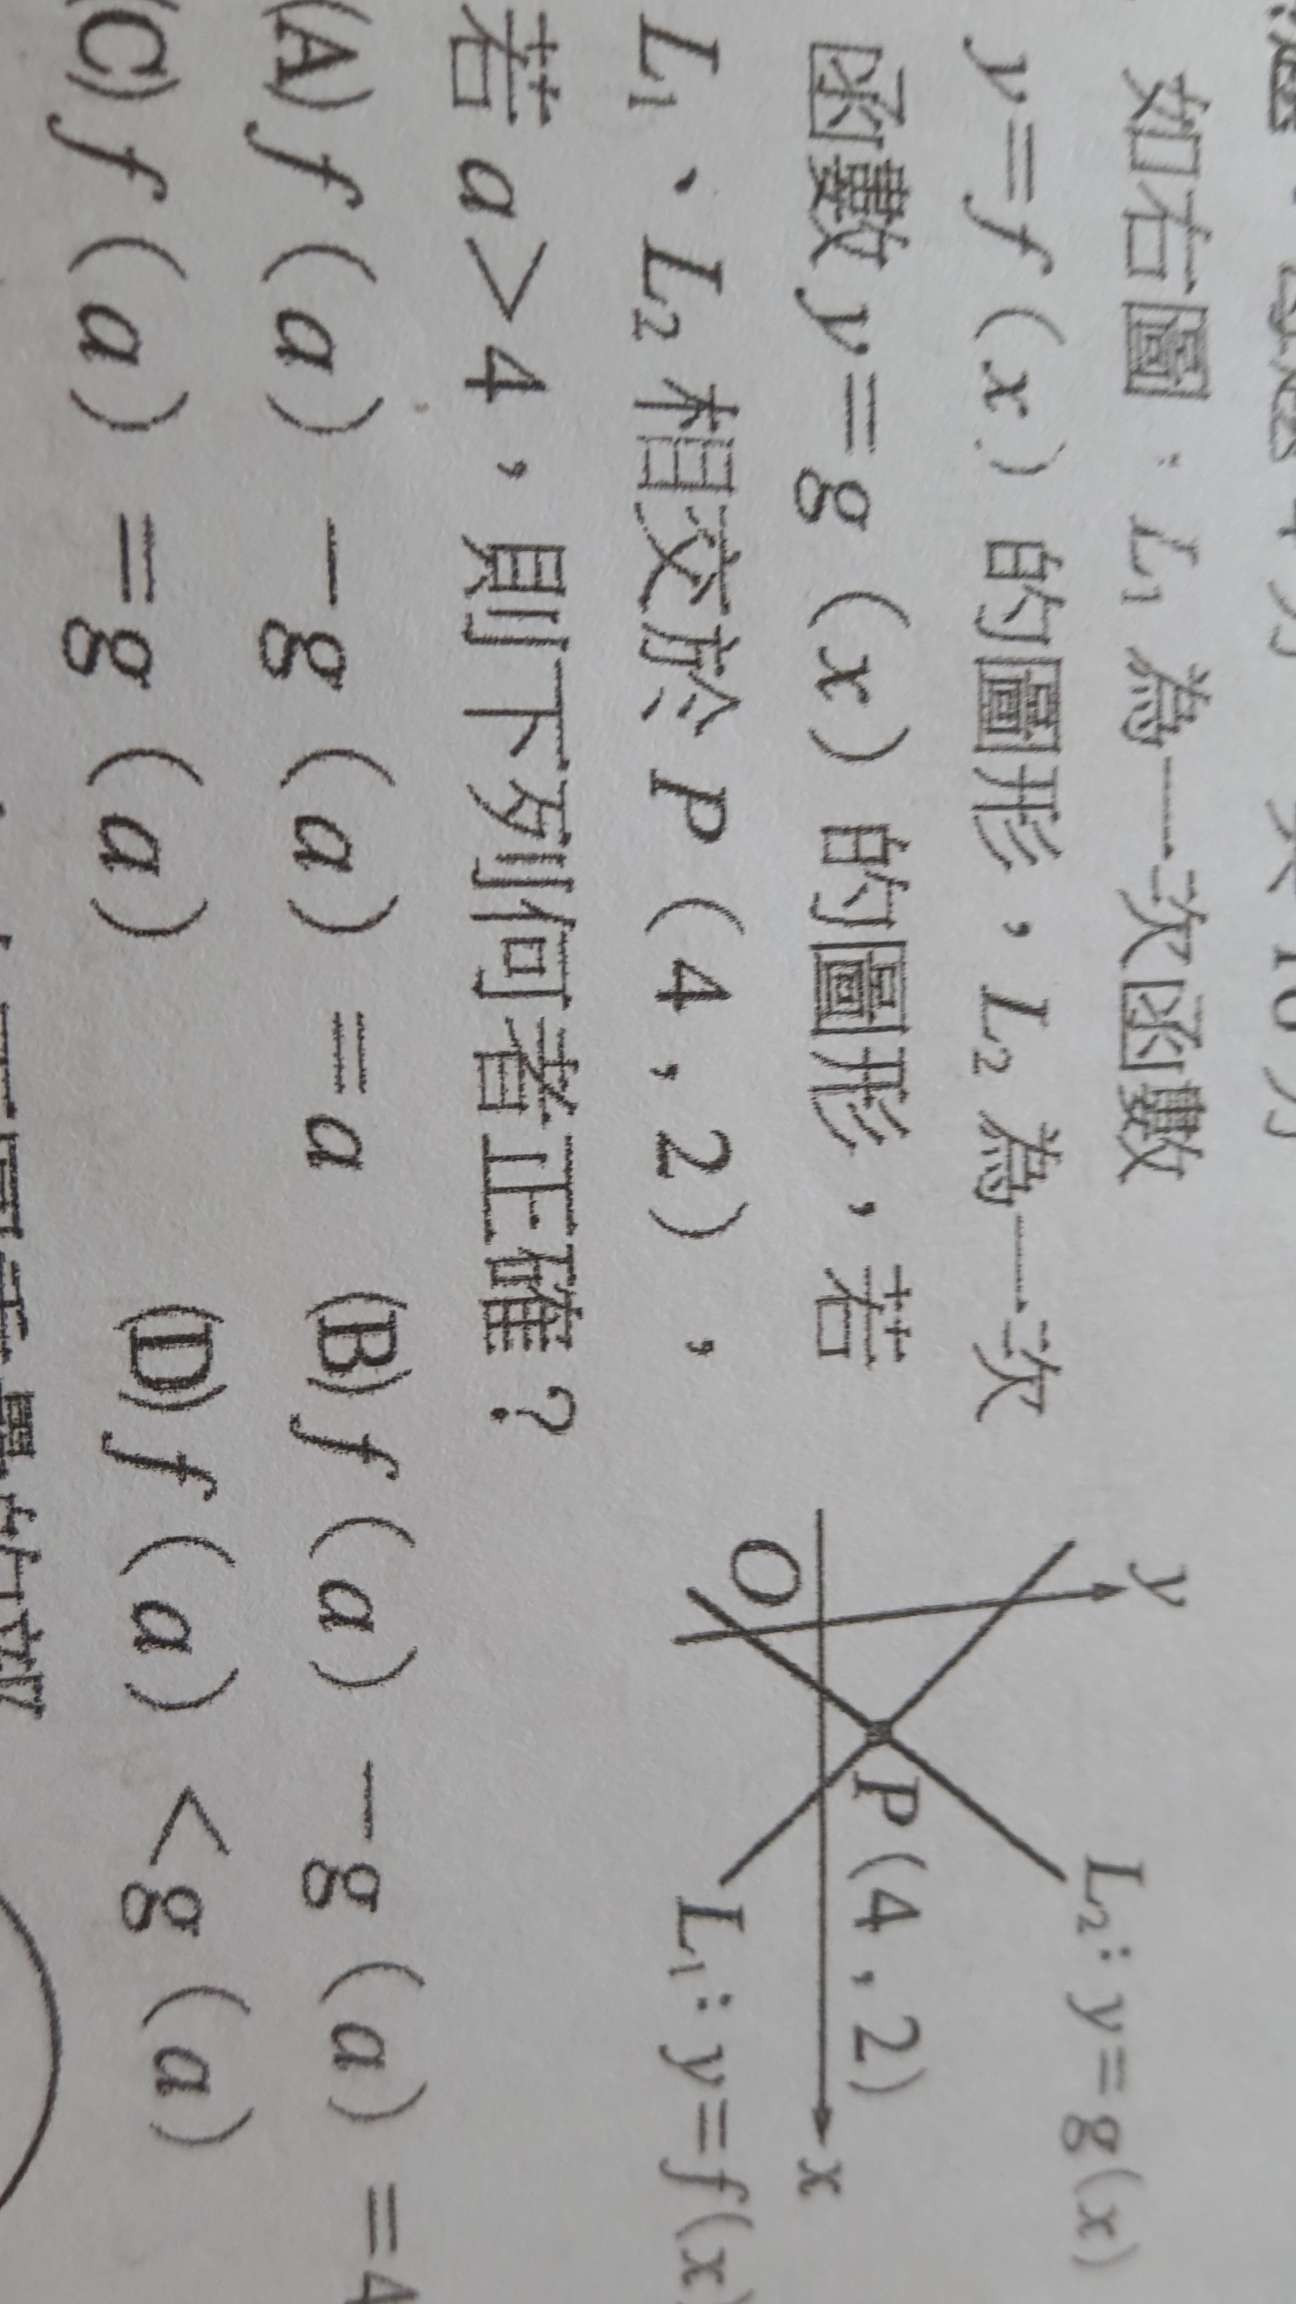 如右圖，L₁ 為一次函數
y＝f（x）的圖形，L₂ 為一次
函數 y＝g（x）的圖形，若
L₁、L₂ 相交於 P（4，2），
若 a＞4，則下列何者正確？
(A) f（a）－g（a）＝a (B) f（a）－g（a）＝4
(C) f（a）＝g（a） (D) f（a）＜g（a）
y
L₂：y＝g(x)
P(4，2)
O
x
L₁：y＝f(x)